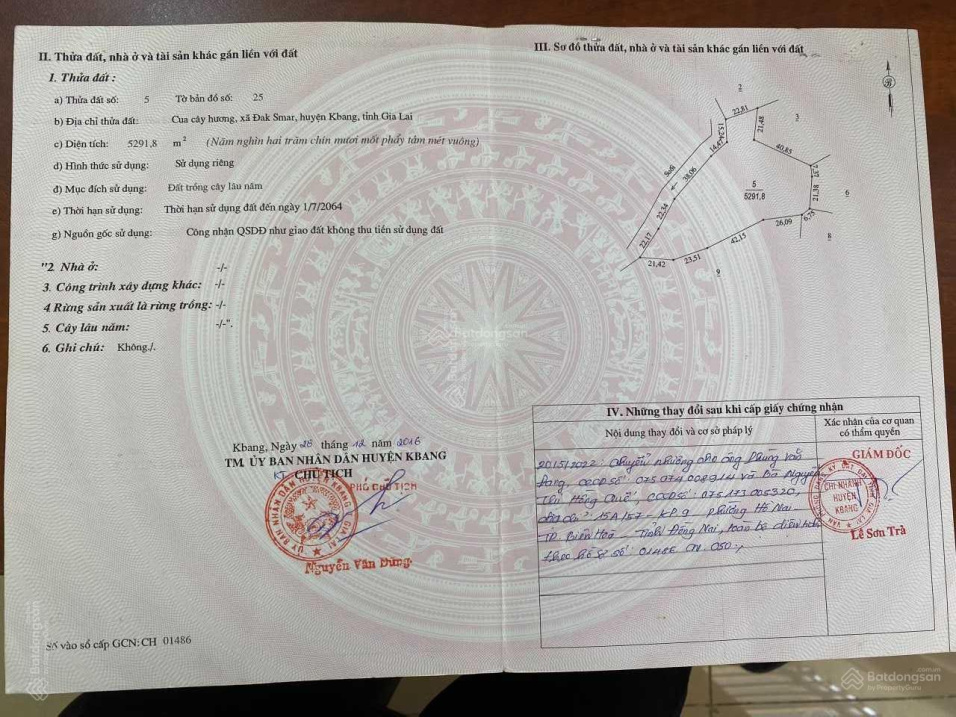 II. Thửa đất, nhà ở và tài sản khác gắn liền với đất
1. Thửa đất :
a) Thửa đất số: 5 Tờ bản đồ số: 25
b) Địa chỉ thửa đất: Cua cây hương, xã Đak Smar, huyện Kbang, tỉnh Gia Lai
c) Diện tích: 5291,8 m² (Năm nghìn hai trăm chín mươi mốt phẩy tám mét vuông)
d) Hình thức sử dụng: Sử dụng riêng
đ) Mục đích sử dụng: Đất trồng cây lâu năm
e) Thời hạn sử dụng: Thời hạn sử dụng đất đến ngày 1/7/2064
g) Nguồn gốc sử dụng: Công nhận QSDĐ như giao đất không thu tiền sử dụng đất
"2. Nhà ở: -/-
3. Công trình xây dựng khác: -/-
4. Rừng sản xuất là rừng trồng: -/-
5. Cây lâu năm: -/-".
6. Ghi chú: Không./.
Kbang, Ngày 28 tháng 12 năm 2016
TM. ỦY BAN NHÂN DÂN HUYỆN KBANG
KT. CHỦ TỊCH
PHÓ CHỦ TỊCH
Nguyễn Văn Dũng
Số vào sổ cấp GCN: CH 01486
III. Sơ đồ thửa đất, nhà ở và tài sản khác gắn liền với đất
2
22,81
15,24
21,48
3
14,47
40,85
Suối
38,06
7,37
5
5291,8
21,38
6
22,34
6,75
26,09
8
22,17
42,15
21,42
23,51
9
IV. Những thay đổi sau khi cấp giấy chứng nhận
Nội dung thay đổi và cơ sở pháp lý
Xác nhận của cơ quan
có thẩm quyền
20/5/2022 Chuyển nhượng cho ông Phùng Văn
CCCD số: 075074008914 và Bà Nguyễn
Hồng Quế, CCCD số: 075173005320,
địa chỉ: 15A/57 - KP.9 phường Hố Nai
TP. Biên Hoà - Tỉnh Đồng Nai, toàn bộ diện tích
theo hồ sơ số: CN. 050
GIÁM ĐỐC
CHI NHÁNH
HUYỆN
KBANG
Lê Sơn Trà
Batdongsan
Batdongsan
Batdongsan
.com.vn
by PropertyGuru